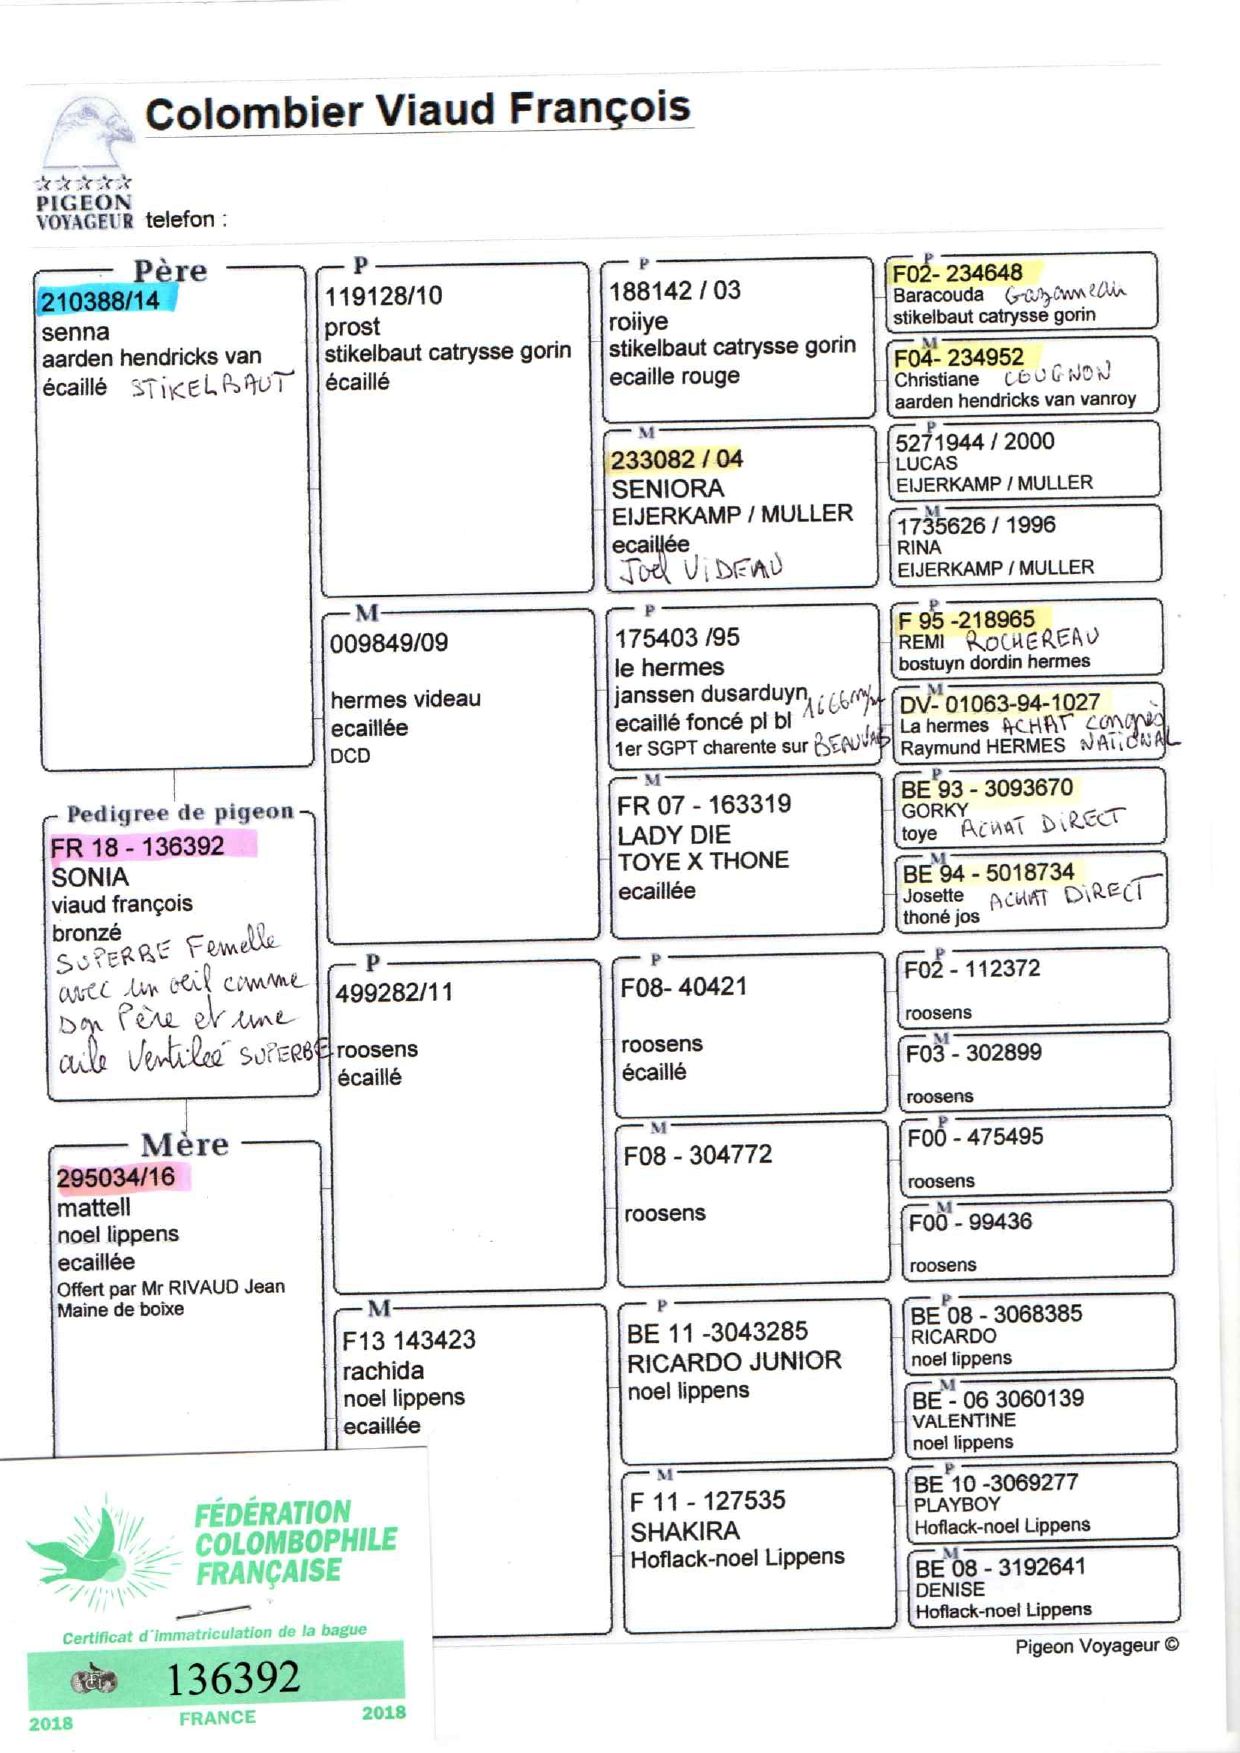 Colombier Viaud François
PIGEON
VOYAGEUR
telefon :
Père
210388/14
senna
aarden hendricks van
écaillé STiKELBAUT
Pedigree de pigeon
FR 18 - 136392
SONIA
viaud françois
bronzé
SUPERBE Femelle
avec un oeil comme
son Père et une
aile Ventileé SUPERBE
Mère
295034/16
mattell
noel lippens
ecaillée
Offert par Mr RIVAUD Jean
Maine de boixe
P
119128/10
prost
stikelbaut catrysse gorin
écaillé
M
009849/09
hermes videau
ecaillée
DCD
P
499282/11
roosens
écaillé
M
F13 143423
rachida
noel lippens
ecaillée
P
188142 / 03
roiiye
stikelbaut catrysse gorin
ecaille rouge
M
233082 / 04
SENIORA
EIJERKAMP / MULLER
ecaillée
Joel ViDEAU
P
175403 /95
le hermes
janssen dusarduyn
ecaillé foncé pl bl
1er SGPT charente sur BEAUVAIS
M
FR 07 - 163319
LADY DIE
TOYE X THONE
ecaillée
P
F08- 40421
roosens
écaillé
M
F08 - 304772
roosens
P
BE 11 -3043285
RICARDO JUNIOR
noel lippens
M
F 11 - 127535
SHAKIRA
Hoflack-noel Lippens
P
F02- 234648
Baracouda
stikelbaut catrysse gorin
M
F04- 234952
Christiane COUGNON
aarden hendricks van vanroy
P
5271944 / 2000
LUCAS
EIJERKAMP / MULLER
M
1735626 / 1996
RINA
EIJERKAMP / MULLER
P
F 95 -218965
REMI ROCHEREAU
bostuyn dordin hermes
M
DV- 01063-94-1027
La hermes ACHAT congrès
Raymund HERMES NATiONAL
P
BE 93 - 3093670
GORKY
toye ACHAT DiRECT
M
BE 94 - 5018734
Josette ACHAT DiRECT
thoné jos
P
F02 - 112372
roosens
M
F03 - 302899
roosens
P
F00 - 475495
roosens
M
F00 - 99436
roosens
P
BE 08 - 3068385
RICARDO
noel lippens
M
BE - 06 3060139
VALENTINE
noel lippens
P
BE 10 -3069277
PLAYBOY
Hoflack-noel Lippens
M
BE 08 - 3192641
DENISE
Hoflack-noel Lippens
Pigeon Voyageur ©
FÉDÉRATION
COLOMBOPHILE
FRANÇAISE
Certificat d'immatriculation de la bague
136392
2018 FRANCE 2018